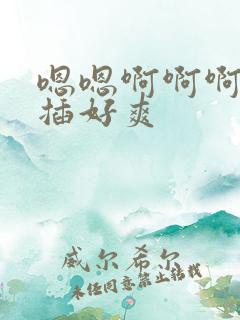 嗯嗯啊啊啊
插好爽
威尔希尔
未经同意禁止转载